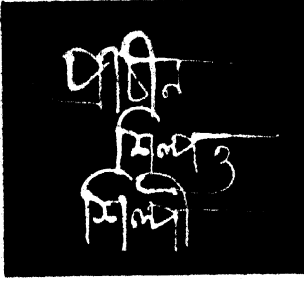 প্রাচীন
শিল্প ও
শিল্পী